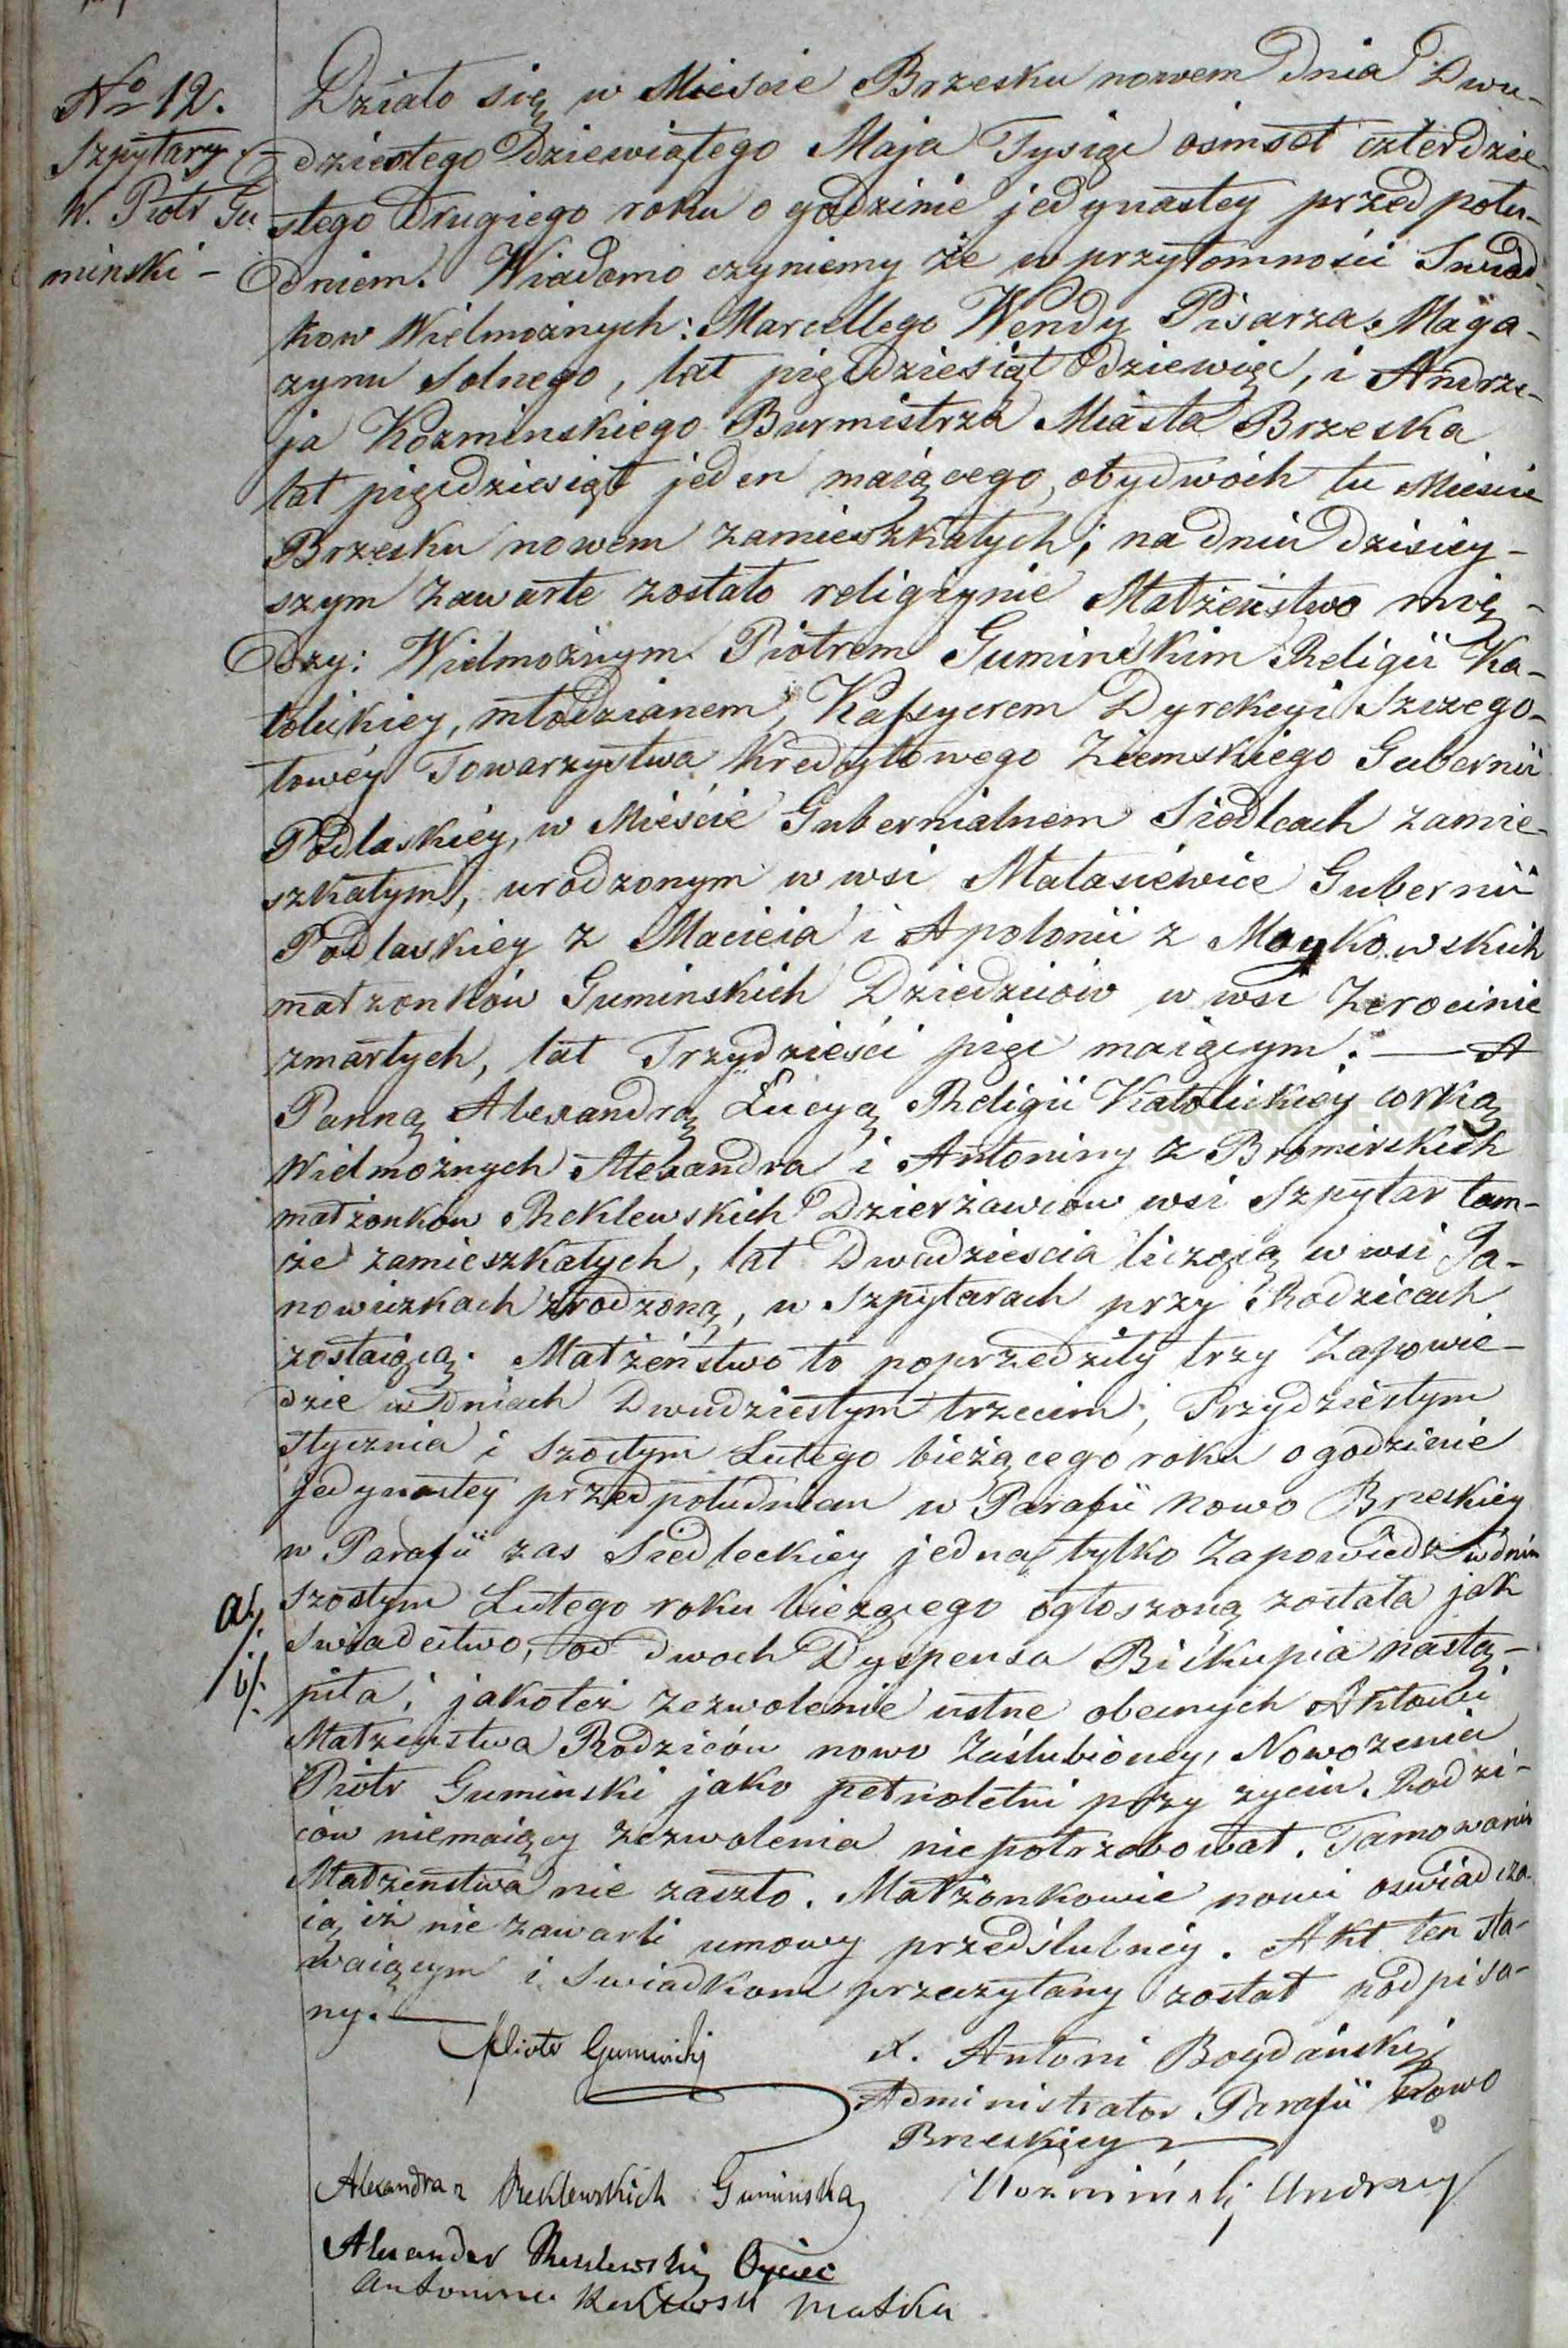 No 12.
Szpytary
W. Piotr Gu
minski -
Działo się w Mieście Brzesku nowem dnia Dwu-
dziestego Dziewiątego Maja Tysiąc ośmset czterdzie-
stego drugiego roku o godzinie jedynastey przed połu-
dniem. Wiadomo czyniemy że w przytomności Swiad-
kow Wielmożnych: Marcellego Wendy Pisarza Maga-
zynu Solnego, lat pięcdziesiąt dziewięc, i Andrze-
ja Kozminskiego Burmistrza Miasta Brzeska
lat pięcdziesiąt jeden maiącego, obydwóch tu Miescie
Brzesku nowem zamieszkałych; na dniu dzisiey-
szym zawarte zostało religiynie Małżeństwo mię-
dzy: Wielmożnym Piotrem Guminskim Religii Ka-
tolickiey, młodzianem, Kassyerem Dyrekcyi Szczego-
łowéy Towarzystwa Kredytowego Ziemskiego Gubernii
Podlaskiéy, w Mieście Gubernialnem Siedlcach zamie-
szkałym, urodzonym w wsi Małasiewice Gubernii
Podlaskiey z Macieia i Apolonii z Maykowskich
małzonków Guminskich Dziedziców w wsi Zerocinie
zmarłych, lat Trzydzieści pięc maiącym. — A
Panną Alexandrą Łucyą Religii Katolickiey corką
Wielmożnych Alexandra i Antoniny z Bromirskich
małżonków Reklewskich Dzierżawców wsi Szpytar tam-
że zamieszkałych, lat Dwadziescia liczącą w wsi Ja-
nowiczkach zrodzoną, w Szpytarach przy Rodzicach
zostaiącą. Małżeństwo to poprzedziły trzy Zapowie-
dzie w dniach Dwudziestym trzecim, Trzydziestym
Stycznia i Szóstym Lutego bieżącego roku o godzinie
jedynastey przed południem w Parafii Nowo Brzeskiey
w Parafii zas Siedleckiey jedna tylko Zapowiedz w dniu
a/. szostym Lutego roku bieżącego ogłoszoną została jak
świadectwo, od dwoch Dyspensa Biskupia nastą-
b/. piła; jakoteż zezwolenie ustne obecnych Aktowi
Małzeństwa Rodziców nowo Zaślubioney, Nowożenia
Piotr Guminski jako pełnoletni przy zyciu Rodzi-
ców niemaiący zezwolenia niepotrzebował. Tamowanie
Małżeństwa nie zaszło. Małżonkowie nowi oswiadcza-
ią iż nie zawarli umowy przedślubnéy. Akt ten sta-
waiącym i Swiadkom przeczytany został podpisa-
ny. —
Piotr Guminski
X. Antoni Bogdański
Administrator Parafii Nowo
Brzeskiey
Alexandra z Reklewskich Guminska
Kozmiński Andrzey
Alexander Reklewski Oyciec
Antonina Reklewsk matka